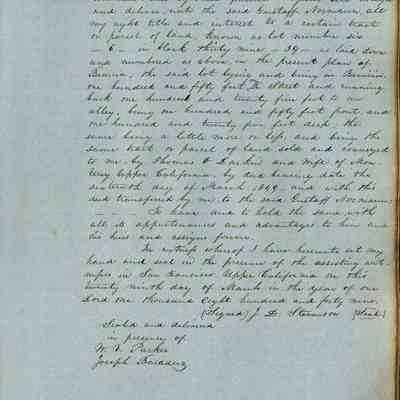 and deliver unto the said Gustaff Normann, all
my right title and interest to a certain tract
or parcel of land, known as lot number six
- 6 - in block thirty nine - 39 - as laid down
and numbered as above, in the present plan of
Benicia, the said lot lying and being in Benicia
one hundred and fifty feet Street and running
back one hundred and twenty five feet to an
alley, being one hundred and fifty feet front, and
one hundred and twenty five feet deep, the
same being a little more or less, and being the
same tract or parcel of land sold and conveyed
to me by Thomas O Larkin and wife of Mon-
terey Upper California, by deed bearing date the
sixteenth day of March 1849. and with this
deed transferred by me to the said Gustaff Normann:
- - - To have and to hold the same with
all its appurtenances and advantages to him and
his heirs and assigns forever.
In witness whereof I have hereunto set my
hand and seal in the presence of the assisting wit-
nesses in San Francisco Upper California on this
twenty ninth day of March in the year of our
Lord one thousand eight hundred and forty nine.
(Signed) J. D. Stevenson (Seal)
Sealed and delivered
in presence of
W. Parker
Joseph